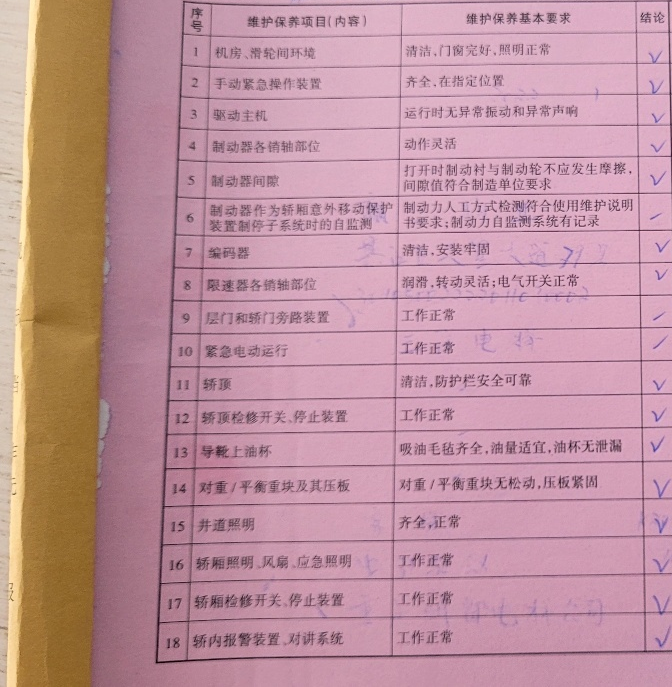 序号 维护保养项目(内容) 维护保养基本要求 结论
1 机房、滑轮间环境 清洁,门窗完好,照明正常 √
2 手动紧急操作装置 齐全,在指定位置 √
3 驱动主机 运行时无异常振动和异常声响 √
4 制动器各销轴部位 动作灵活 √
5 制动器间隙 打开时制动衬与制动轮不应发生摩擦,
间隙值符合制造单位要求 √
6 制动器作为轿厢意外移动保护 制动力人工方式检测符合使用维护说明
装置制停子系统时的自监测 书要求;制动力自监测系统有记录 /
7 编码器 清洁,安装牢固 √
8 限速器各销轴部位 润滑,转动灵活;电气开关正常 √
9 层门和轿门旁路装置 工作正常 /
10 紧急电动运行 工作正常 /
11 轿顶 清洁,防护栏安全可靠 √
12 轿顶检修开关、停止装置 工作正常 √
13 导靴上油杯 吸油毛毡齐全,油量适宜,油杯无泄漏 √
14 对重/平衡重块及其压板 对重/平衡重块无松动,压板紧固 √
15 井道照明 齐全,正常 √
16 轿厢照明、风扇、应急照明 工作正常 √
17 轿厢检修开关、停止装置 工作正常 √
18 轿内报警装置、对讲系统 工作正常 √